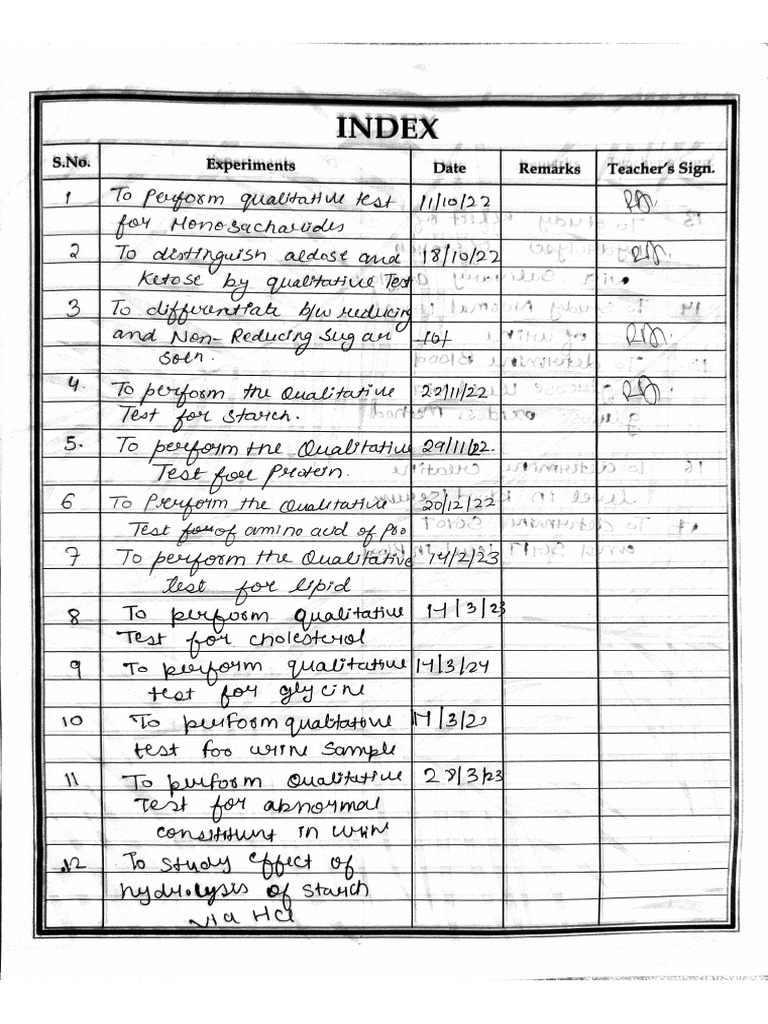 INDEX
S.No. Experiments Date Remarks Teacher's Sign.
1 To perform qualitative test 11/10/22
for Monosacharides
2 To distinguish aldose and 18/10/22
Ketose by qualitative Test
3 To differentiate b/w reducing
and Non-Reducing Sugar
Soln.
4. To perform the Qualitative 22/11/22
Test for Starch.
5. To perform the Qualitative 29/11/22.
Test for Protein.
6 To Perform the Qualitative 20/12/22
Test for of amino acid of pro
7 To perform the Qualitative 14/2/23
test for lipid
8 To perform qualitative 14/3/23
Test for cholesterol
9 To perform qualitative 14/3/24
test for glycine
10 To perform qualitative
test for urine Sample
11 To perform Qualitative 28/3/23
Test for abnormal
constituent in urine
12 To Study effect of
hydrolyses of Starch
via Hcl